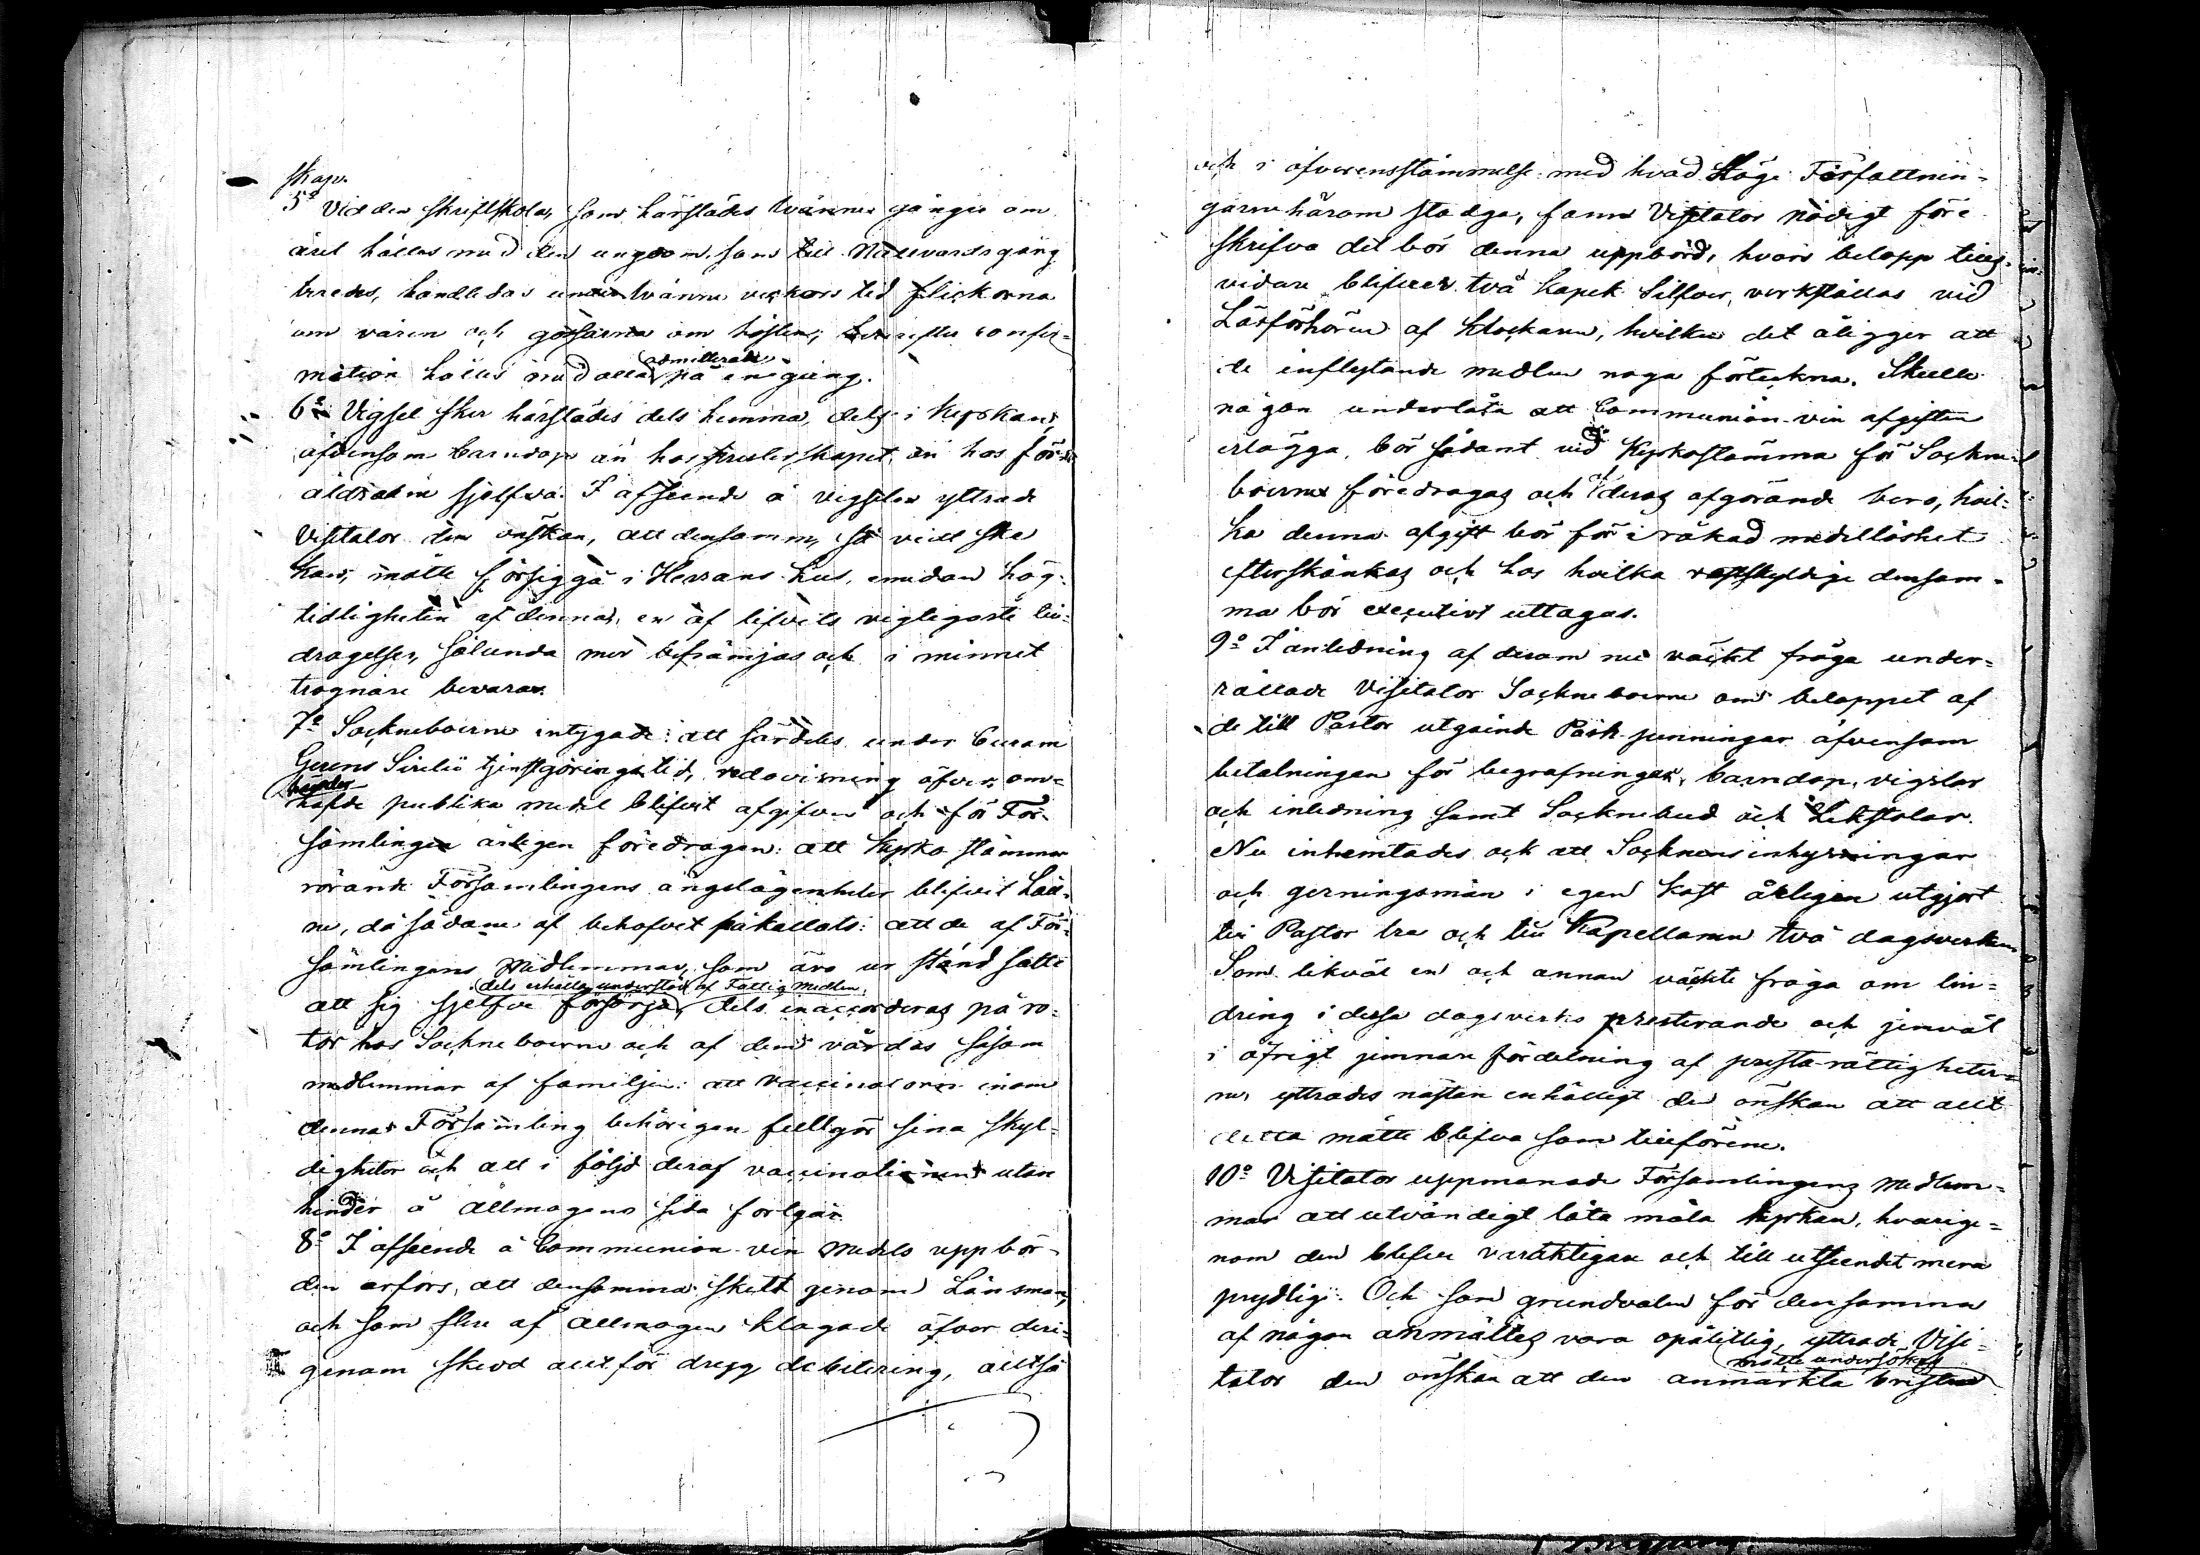 skap.
5º Vid den skriftskola, som härstädes tvänne gånger om
året hålles med den ungdom som till Nattvardsgång
beredes, handledas under tvänne veckors tid flickorna
om våren och gossarna om hösten; hvarefter confir-
mation hålles med alla admitterade på en gång.
6º Vigsel sker härstädes dels hemma, dels i Kyrkan,
äfvensom barndop än hos presterskapet, än hos för-
äldrarne sjelfva. I afseende å vigseln yttrade
Visitator den önskan, att densamma, så vidt ske
kan, måtte försiggå i Herrans hus, emedan hög-
tidligheten af denna, en af lifvets vigtigaste till-
dragelser, sålunda mer befrämjas och i minnet
trognare bevaras.
7º Socknebоerne intygade: att särdeles under Curam
Gerens Sirelii tjenstgöringstid, redovisning öfver om-
händer
hafde publika medel blifvit afgifven och för För-
samlingen årligen föredragen: att Kyrko stämmor
rörande Församlingens angelägenheter blifvit håll-
ne, då sådane af behofvet påkallats: att de af För-
samlingens Medlemmar, som äro ur stånd satte
dels erhålla understöd af Fattig medlen,
att sig sjelfve försörja, dels inaccorderas på ro-
tor hos Sockneboerne och af dem vårdas såsom
medlemmar af familjen: att vaccinatoren inom
denna Församling behörigen fullgör sina skyl-
digheter och att i följd deraf vaccinationen utan
hinder å allmogens sida fortgår.
8º I afseende å Communion vin medels uppbör-
den erfors, att densamma skett genom Länsman,
och som flere af allmogen klagade öfver deri-
genom skedd allt för dryg debitering, alltså
och i öfverensstämmelse med hvad Höge Författnin-
garne härom stadga, fann Visitator nödigt före
skrifva det bör denna uppbörd, hvars belopp tills-
vidare blifver två Kopek Silfver, verkställas vid
Läsförhören af Klockaren, hvilken det åligger att
de inflytande medlen noga förteckna. Skulle
någon underlåta att Communion-vin afgiften
erlägga, bör sådant vid Kyrkostämma för Sockne-
boerne föredragas och af deras afgörande bero, hvil-
ka denna afgift bör för iråkad medellöshet
efterskänkas och hos hvilka densam-
ma bör executivt uttagas.
9º I anledning af derom nu väckt fråga under-
rättade Visitator Sockneboerne om beloppet af
de till Pastor utgående Påsk-penningar äfvensom
betalningen för begrafningar, barndop, vigslar
och inledning samt Socknebud och Likstolar.
Nu inhemtades ock att Socknens inhysningar
och gerningsmän i egen kost årligen utgjort
till Pastor tre och till Kapellanen två dagsverken
Som likväl en och annan väckte fråga om lin-
dring i dessa dagsverks presterande och jemväl
i öfrigt jemnare fördelning af presta-rättigheter-
na, yttrades nästan enhälligt den önskan att allt
detta måtte blifva som tillförene.
10º Visitator uppmanade Församlingens medlem-
mar att utvändigt låta måla kyrkan, hvarige-
nom den blefve varaktigare och till utseendet mera
prydlig. Och som grundvalen för densamma
af någon anmältes vara opålitlig, yttrade Visi-
måtte undersökas
tator den önskan att den anmärkta bristen